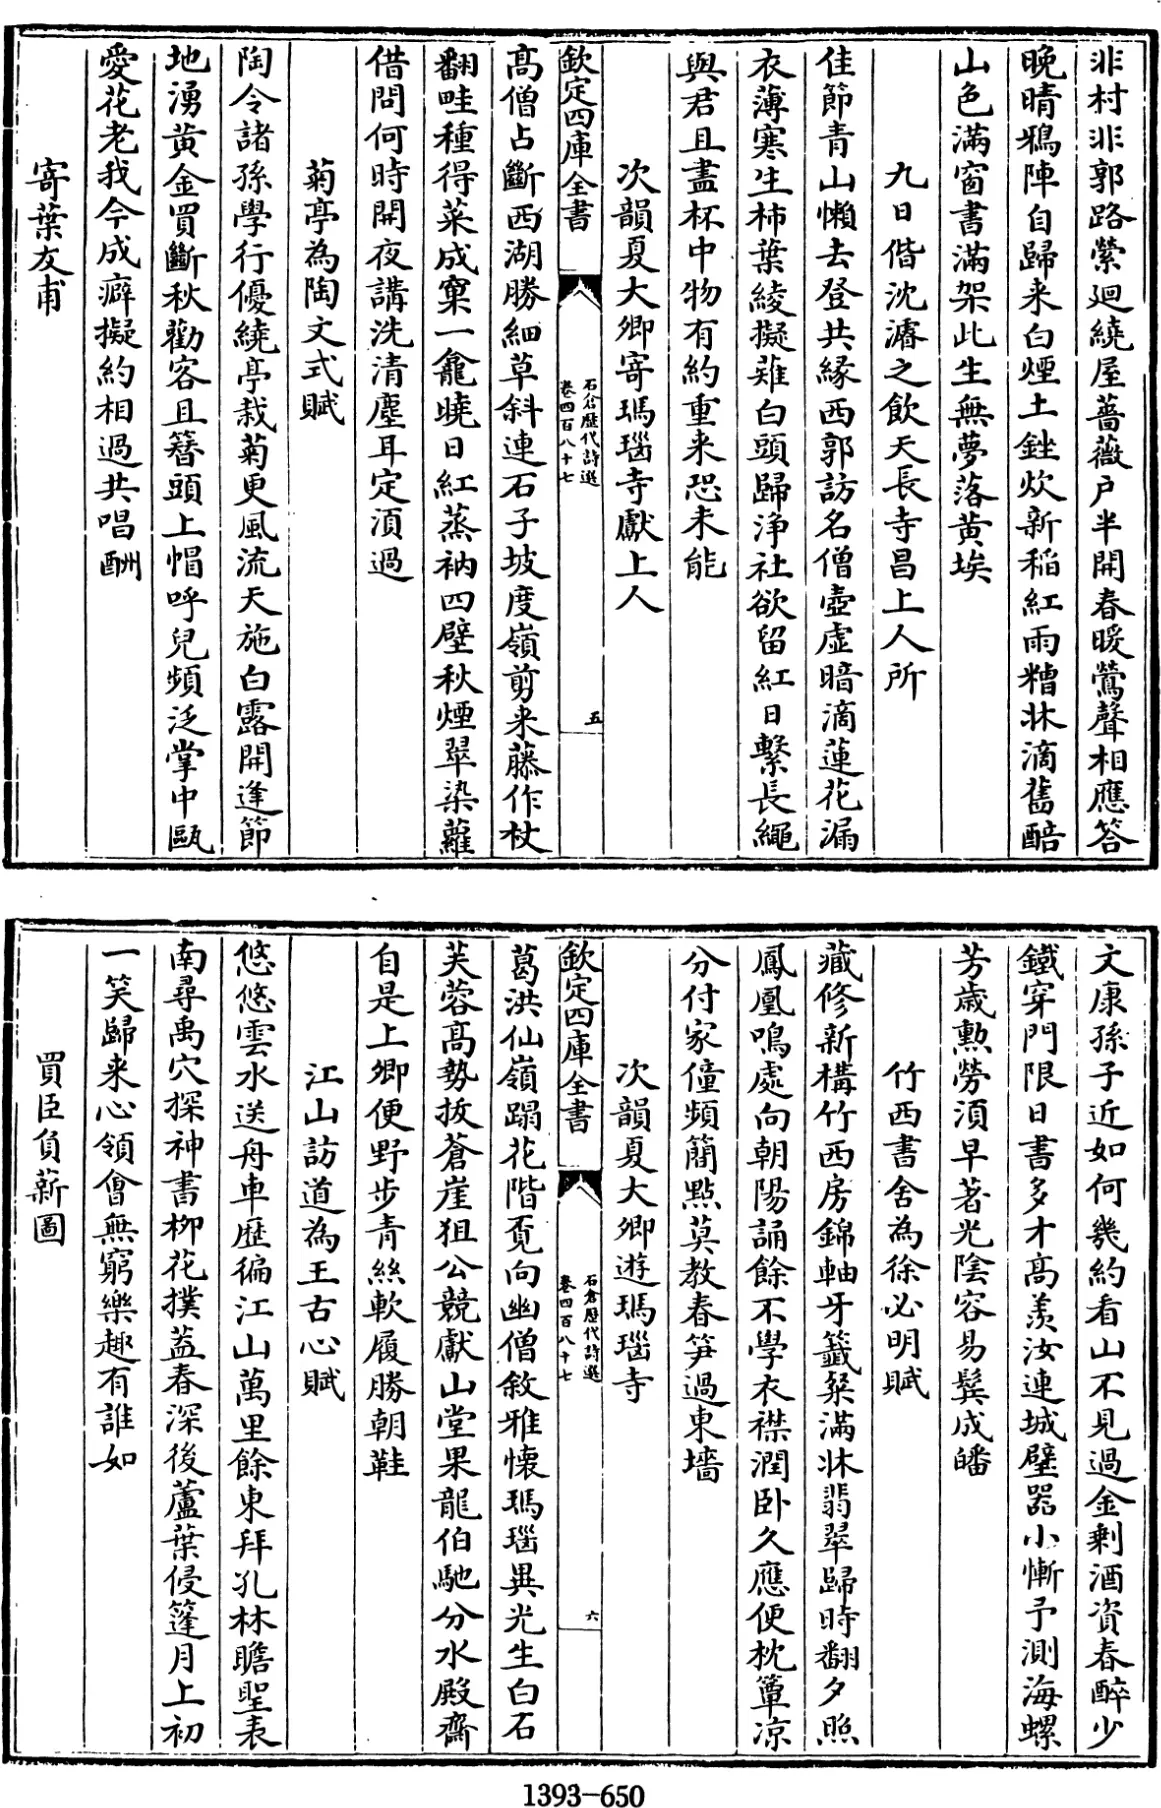 非村非郭路縈廻繞屋薔薇户半開春暖鶯聲相應答
晚晴鴉陣自歸来白煙土銼炊新稻紅雨糟牀滴舊醅
山色滿窗書滿架此生無夢落黄埃
九日偕沈濬之飲天長寺昌上人所
佳節青山懶去登共緣西郭訪名僧壺虛暗滴蓮花漏
衣薄寒生柿葉綾擬薙白頭歸浄社欲留紅日繫長繩
與君且盡杯中物有約重来恐未能
次韻夏大卿寄瑪瑙寺獻上人
欽定四庫全書
石倉歷代詩選
卷四百八十七
五
高僧占斷西湖勝細草斜連石子坡度嶺剪来藤作杖
翻畦種得菜成窠一龕曉日紅蒸衲四壁秋煙翠染蘿
借問何時開夜講洗清塵耳定湏過
菊亭為陶文式賦
陶令諸孫學行優繞亭栽菊更風流天施白露開逢節
地湧黄金買斷秋勸客且簪頭上帽呼兒頻泛掌中甌
愛花老我今成癖擬約相過共唱酬
寄葉友甫
文康孫子近如何幾約看山不見過金剩酒資春醉少
鐵穿門限日書多才高羡汝連城璧器小慚予測海螺
芳歲勲勞湏早著光陰容易鬂成皤
竹西書舍為徐必明賦
藏修新構竹西房錦軸牙籤粲滿牀翡翠歸時翻夕照
鳳凰鳴處向朝陽誦餘不學衣襟潤卧久應便枕簟凉
分付家僮頻簡㸃莫教春笋過東墻
次韻夏大卿遊瑪瑙寺
欽定四庫全書
石倉歷代詩選
卷四百八十七
六
葛洪仙嶺蹋花階覔向幽僧敘雅懷瑪瑙異光生白石
芙蓉髙勢拔蒼崖狙公競獻山堂果龍伯馳分水殿齋
自是上卿便野步青絲軟履勝朝鞋
江山訪道為王古心賦
悠悠雲水送舟車歷徧江山萬里餘東拜孔林瞻聖表
南尋禹穴探神書柳花撲葢春深後蘆葉侵篷月上初
一笑歸来心領會無窮樂趣有誰如
買臣負薪圖
1393-650